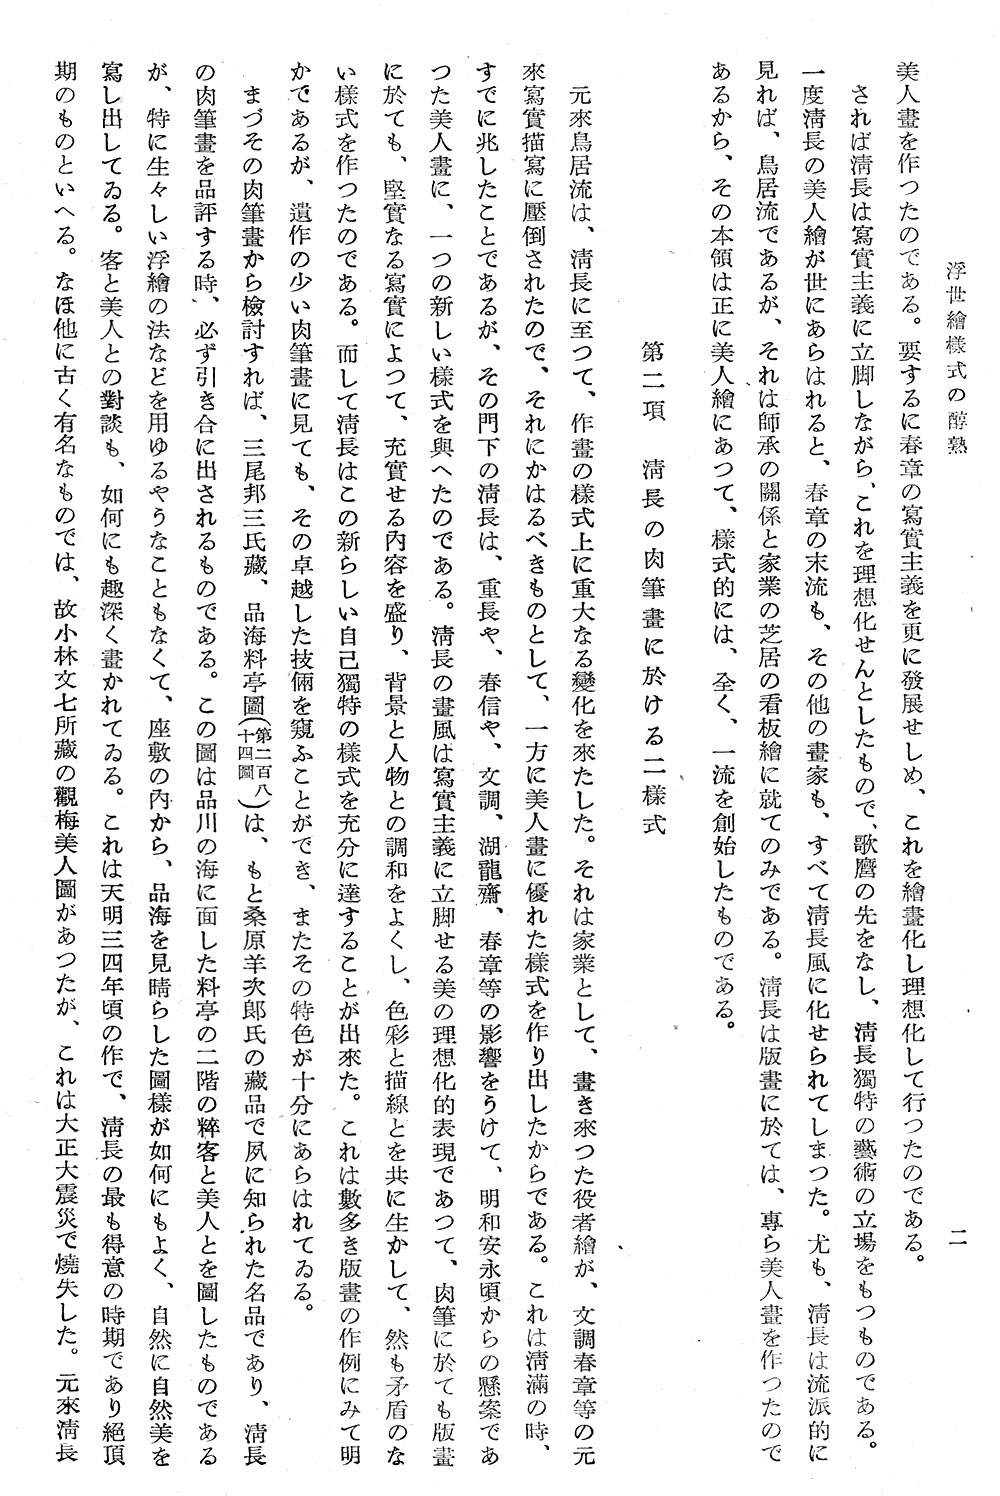 浮世繪樣式の醇熟
二
美人畫を作つたのである。要するに春章の寫實主義を更に發展せしめ、これを繪畫化し理想化して行つたのである。
されば淸長は寫實主義に立脚しながら、これを理想化せんとしたもので、歌麿の先をなし、淸長獨特の藝術の立場をもつものである。
一度淸長の美人繪が世にあらはれると、春章の末流も、その他の畫家も、すべて淸長風に化せられてしまつた。尤も、淸長は流派的に
見れば、鳥居流であるが、それは師承の關係と家業の芝居の看板繪に就てのみである。淸長は版畫に於ては、專ら美人畫を作つたので
あるから、その本領は正に美人繪にあつて、樣式的には、全く、一流を創始したものである。
第二項　淸長の肉筆畫に於ける二樣式
元來鳥居流は、淸長に至つて、作畫の樣式上に重大なる變化を來たした。それは家業として、畫き來つた役者繪が、文調春章等の元
來寫實描寫に壓倒されたので、それにかはるべきものとして、一方に美人畫に優れた樣式を作り出したからである。これは淸滿の時、
すでに兆したことであるが、その門下の淸長は、重長や、春信や、文調、湖龍齋、春章等の影響をうけて、明和安永頃からの懸案であ
つた美人畫に、一つの新しい樣式を與へたのである。淸長の畫風は寫實主義に立脚せる美の理想化的表現であつて、肉筆に於ても版畫
に於ても、堅實なる寫實によつて、充實せる內容を盛り、背景と人物との調和をよくし、色彩と描線とを共に生かして、然も矛盾のな
い樣式を作つたのである。而して淸長はこの新らしい自己獨特の樣式を充分に達することが出來た。これは數多き版畫の作例にみて明
かであるが、遺作の少い肉筆畫に見ても、その卓越した技倆を窺ふことができ、またその特色が十分にあらはれてゐる。
まづその肉筆畫から檢討すれば、三尾邦三氏藏、品海料亭圖(第二百八十四圖)は、もと桑原羊次郞氏の藏品で夙に知られた名品であり、淸長
の肉筆畫を品評する時、必ず引き合に出されるものである。この圖は品川の海に面した料亭の二階の粹客と美人とを圖したものである
が、特に生々しい浮繪の法などを用ゆるやうなこともなくて、座敷の內から、品海を見晴らした圖樣が如何にもよく、自然に自然美を
寫し出してゐる。客と美人との對談も、如何にも趣深く畫かれてゐる。これは天明三四年頃の作で、淸長の最も得意の時期であり絕頂
期のものといへる。なほ他に古く有名なものでは、故小林文七所藏の觀梅美人圖があつたが、これは大正大震災で燒失した。元來淸長